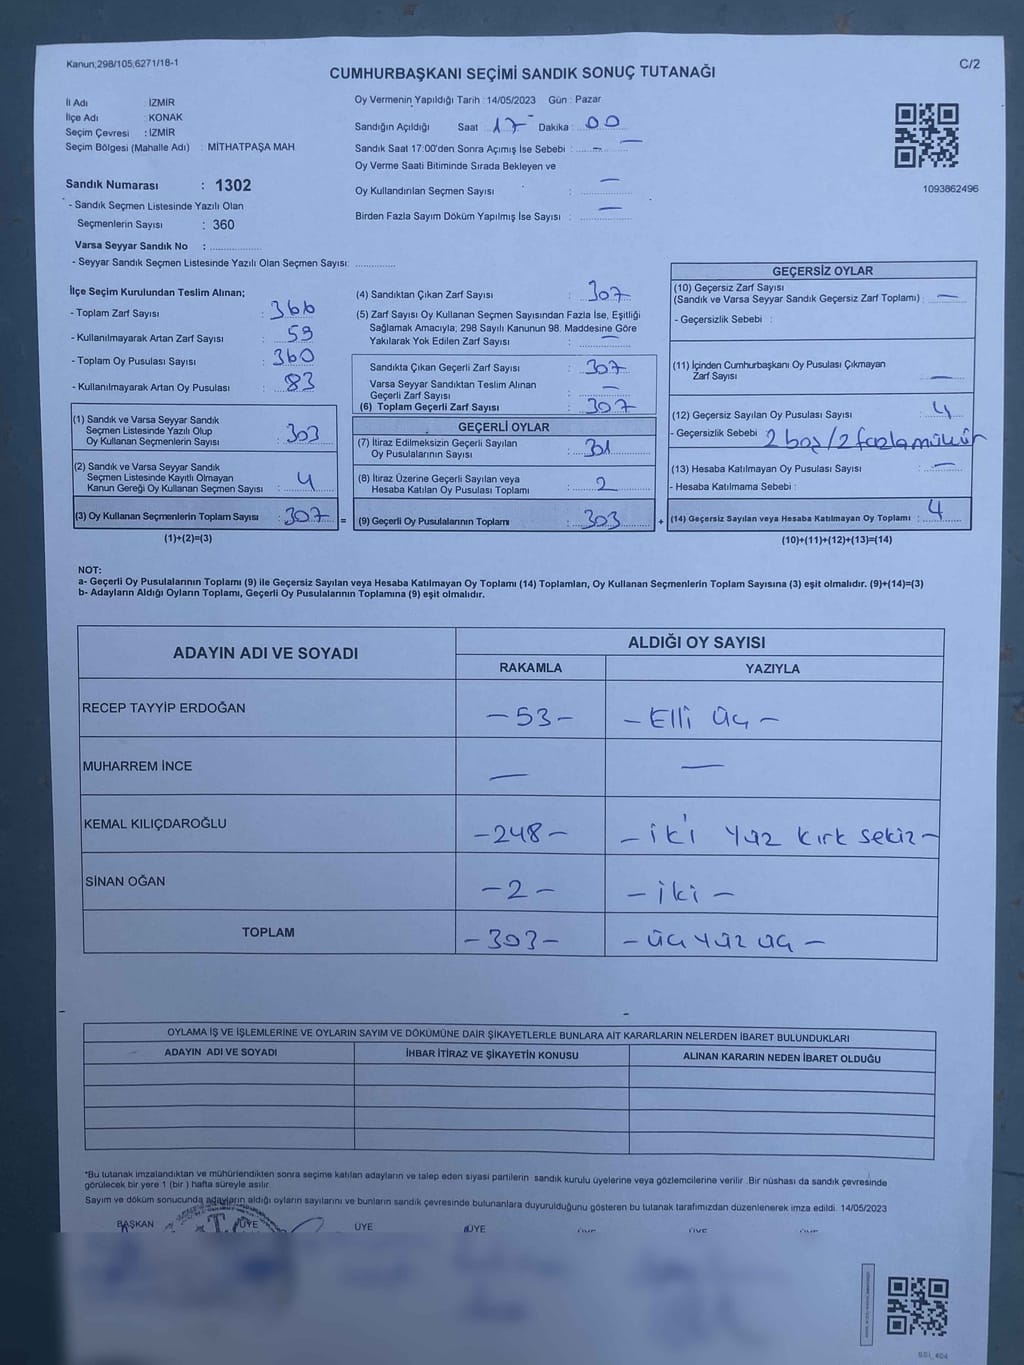 Kanun;298/105;6271/18-1
C/2
CUMHURBAŞKANI SEÇİMİ SANDIK SONUÇ TUTANAĞI
İl Adı : İZMİR
İlçe Adı : KONAK
Seçim Çevresi : İZMİR
Seçim Bölgesi (Mahalle Adı) : MİTHATPAŞA MAH
Sandık Numarası : 1302
- Sandık Seçmen Listesinde Yazılı Olan
Seçmenlerin Sayısı : 360
Varsa Seyyar Sandık No :
- Seyyar Sandık Seçmen Listesinde Yazılı Olan Seçmen Sayısı:
Oy Vermenin Yapıldığı Tarih : 14/05/2023 Gün : Pazar
Sandığın Açıldığı Saat 17 Dakika : 00
Sandık Saat 17:00'den Sonra Açımış İse Sebebi : —
Oy Verme Saati Bitiminde Sırada Bekleyen ve
Oy Kullandırılan Seçmen Sayısı : —
Birden Fazla Sayım Döküm Yapılmış İse Sayısı : —
1093862496
İlçe Seçim Kurulundan Teslim Alınan;
- Toplam Zarf Sayısı : 366
- Kullanılmayarak Artan Zarf Sayısı : 59
- Toplam Oy Pusulası Sayısı : 360
- Kullanılmayarak Artan Oy Pusulası : 83
(1) Sandık ve Varsa Seyyar Sandık
Seçmen Listesinde Yazılı Olup
Oy Kullanan Seçmenlerin Sayısı : 303
(2) Sandık ve Varsa Seyyar Sandık
Seçmen Listesinde Kayıtlı Olmayan
Kanun Gereği Oy Kullanan Seçmen Sayısı : 4
(3) Oy Kullanan Seçmenlerin Toplam Sayısı : 307 =
(1)+(2)=(3)
(4) Sandıktan Çıkan Zarf Sayısı : 307
(5) Zarf Sayısı Oy Kullanan Seçmen Sayısından Fazla İse, Eşitliği
Sağlamak Amacıyla; 298 Sayılı Kanunun 98. Maddesine Göre
Yakılarak Yok Edilen Zarf Sayısı : —
Sandıkta Çıkan Geçerli Zarf Sayısı : 307
Varsa Seyyar Sandıktan Teslim Alınan
Geçerli Zarf Sayısı : —
(6) Toplam Geçerli Zarf Sayısı : 307
GEÇERLİ OYLAR
(7) İtiraz Edilmeksizin Geçerli Sayılan
Oy Pusulalarının Sayısı : 301
(8) İtiraz Üzerine Geçerli Sayılan veya
Hesaba Katılan Oy Pusulası Toplamı : 2
(9) Geçerli Oy Pusulalarının Toplamı : 303 +
GEÇERSİZ OYLAR
(10) Geçersiz Zarf Sayısı
(Sandık ve Varsa Seyyar Sandık Geçersiz Zarf Toplamı) : —
- Geçersizlik Sebebi :
(11) İçinden Cumhurbaşkanı Oy Pusulası Çıkmayan
Zarf Sayısı : —
(12) Geçersiz Sayılan Oy Pusulası Sayısı : 4
- Geçersizlik Sebebi 2 boş/2 fazla mühür
(13) Hesaba Katılmayan Oy Pusulası Sayısı : —
- Hesaba Katılmama Sebebi :
(14) Geçersiz Sayılan veya Hesaba Katılmayan Oy Toplamı : 4
(10)+(11)+(12)+(13)=(14)
NOT:
a- Geçerli Oy Pusulalarının Toplamı (9) ile Geçersiz Sayılan veya Hesaba Katılmayan Oy Toplamı (14) Toplamları, Oy Kullanan Seçmenlerin Toplam Sayısına (3) eşit olmalıdır. (9)+(14)=(3)
b- Adayların Aldığı Oyların Toplamı, Geçerli Oy Pusulalarının Toplamına (9) eşit olmalıdır.
ADAYIN ADI VE SOYADI ALDIĞI OY SAYISI
RAKAMLA YAZIYLA
RECEP TAYYİP ERDOĞAN – 53 – – Elli üç –
MUHARREM İNCE — —
KEMAL KILIÇDAROĞLU – 248 – – iki yüz kırk sekiz –
SİNAN OĞAN – 2 – – iki –
TOPLAM – 303 – – üç yüz üç –
OYLAMA İŞ VE İŞLEMLERİNE VE OYLARIN SAYIM VE DÖKÜMÜNE DAİR ŞİKAYETLERLE BUNLARA AİT KARARLARIN NELERDEN İBARET BULUNDUKLARI
ADAYIN ADI VE SOYADI İHBAR İTİRAZ VE ŞİKAYETİN KONUSU ALINAN KARARIN NEDEN İBARET OLDUĞU
*Bu tutanak imzalandıktan ve mühürlendikten sonra seçime katılan adayların ve talep eden siyasi partilerin sandık kurulu üyelerine veya gözlemcilerine verilir .Bir nüshası da sandık çevresinde
görülecek bir yere 1 (bir ) hafta süreyle asılır.
Sayım ve döküm sonucunda adayların aldığı oyların sayılarını ve bunların sandık çevresinde bulunanlara duyurulduğunu gösteren bu tutanak tarafımızdan düzenlenerek imza edildi. 14/05/2023
BAŞKAN ÜYE ÜYE ÜYE